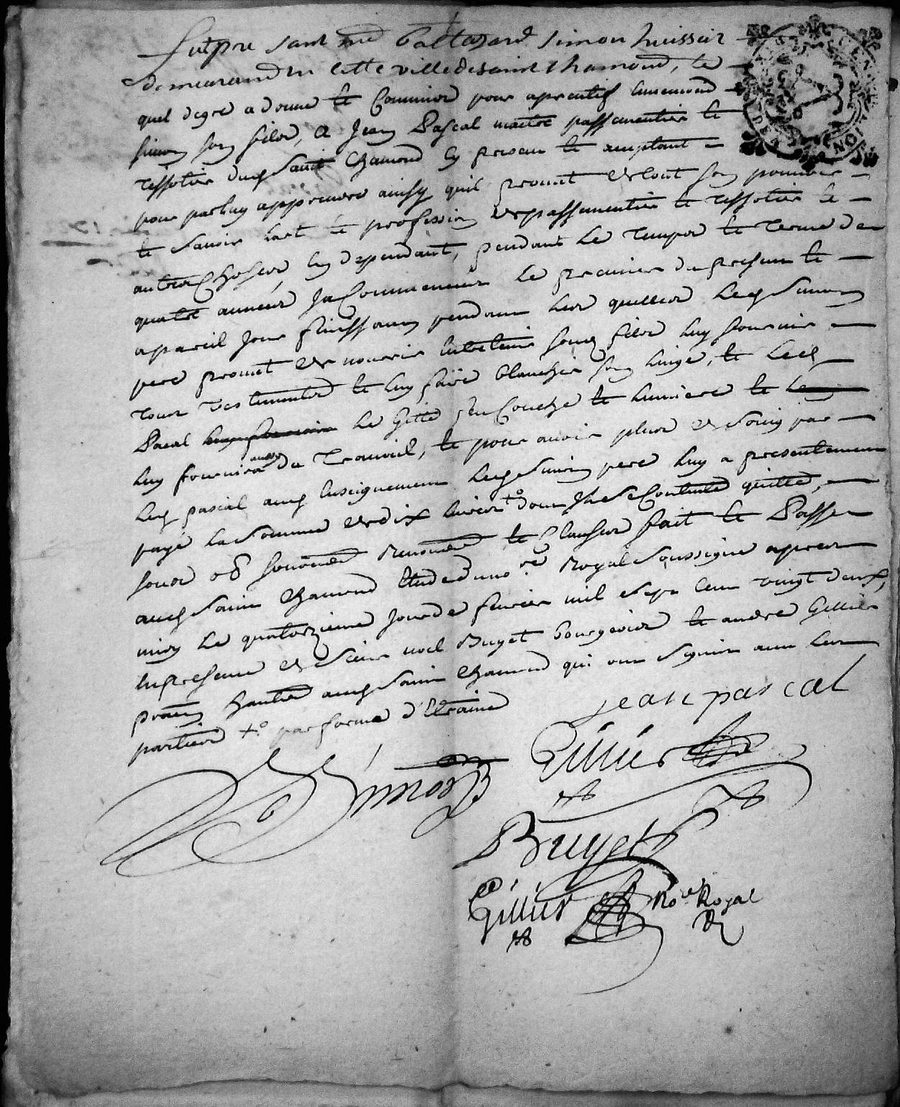 Fut présent sieur Baltazard Simon huissier
demeurant en cette ville de saint Chamond, le
quel de gre a donne et Commis pour aprentif
Simon son filz, a Jean Pascal maitre passementier et
tessotier dud Saint Chamond cy present et acceptant
pour par luy apprendre ainsy quil promet de tout son pouvoir
et savoir lart et profession de passementier et tessotier et
autres Choses en dependant, pendant le temps et terme de
quatre années Ja Commencées le premier du present et
a pareil jour finissant pendant lesquelles led Simon
pere promet de nourrir son filz luy fournir
tous vestements et luy faire blanchir son linge, et led
Pascal le gitte en Couche et lumiere et le
luy fournira aussy du travail, et pour avoir plus de soin par
led pascal aud enseignement led Simon pere luy a presentement
payé la somme de dix livres +° dont Il se Contente quitte,
et Clauses fait et Passé
aud saint Chamond Etude du no.re Royal soussigne apres
midy le quatorzieme Jour de fevrier mil sept cent vingt deux,
en presence de sieur noel Buyet bourgeois et andre Gillier
praen habitant aud saint Chamond qui ont signés avec les
parties +° par forme d'Etraine
jean pascal
Simon
Gillier
Buyet
Gillier
No.re Royal